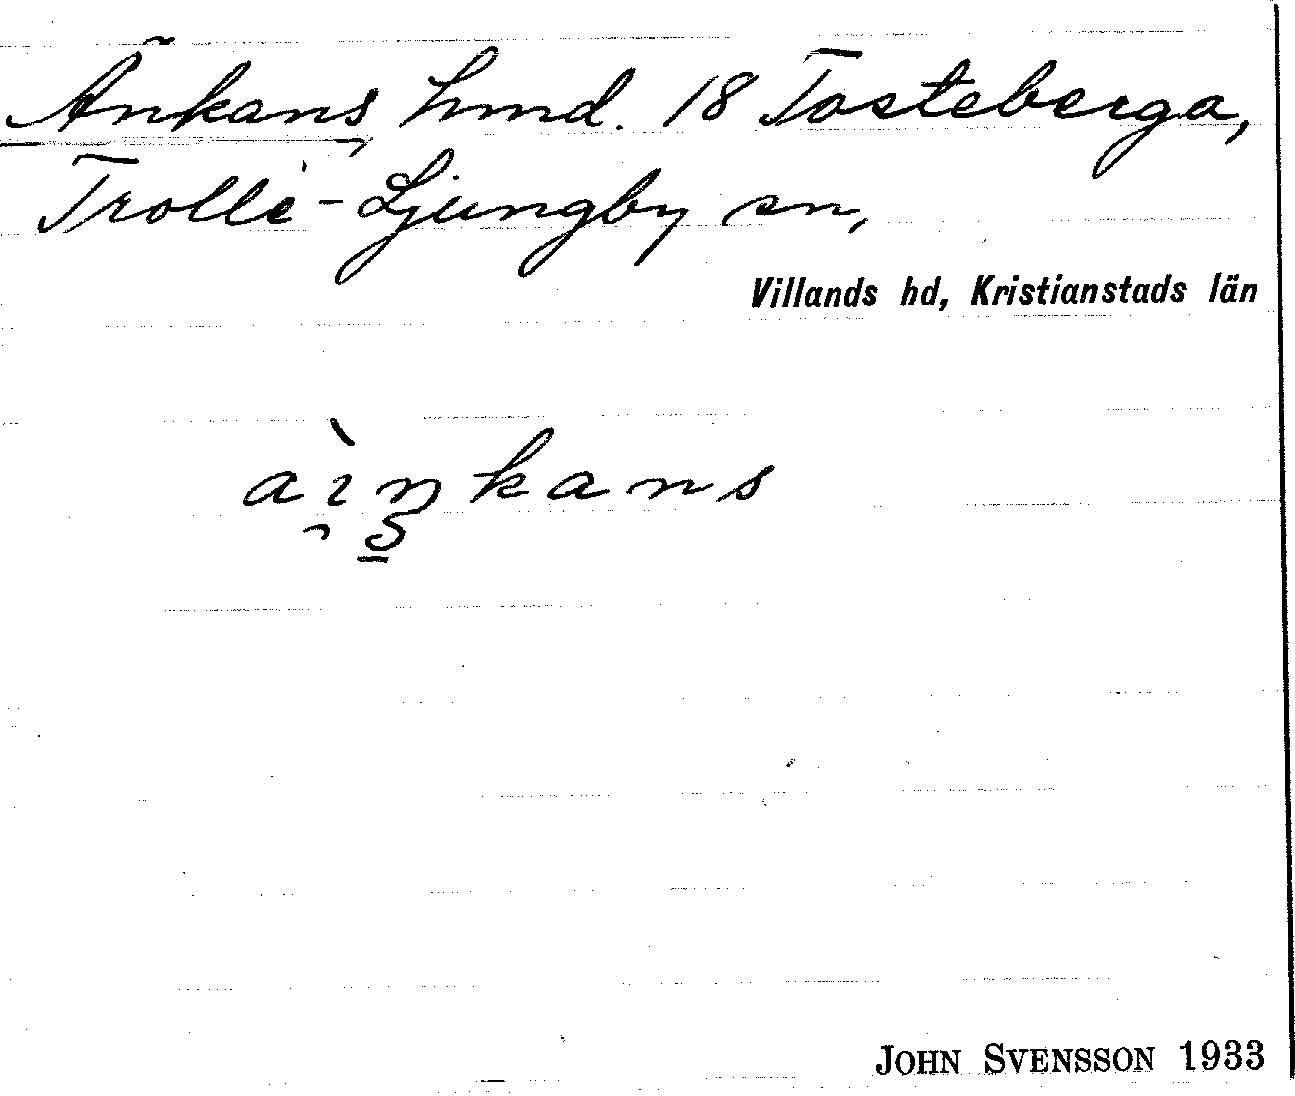 Änkans, hmd. 18 Tosteberga,
Trolle-Ljungby sn,
Villands hd, Kristianstads län
aìŋkans
JOHN SVENSSON 1933